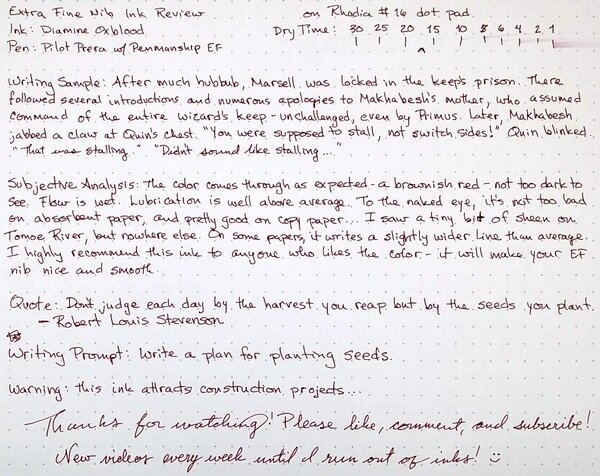 Extra Fine Nib Ink Review on Rhodia #16 dot pad
Ink: Diamine Oxblood Dry Time: 30 25 20 15 10 8 6 4 2 1
Pen: Pilot Prera w/ Penmanship EF
Writing Sample: After much hubbub, Marsell was locked in the keep's prison. There
followed several introductions and numerous apologies to Makhabesh's mother, who assumed
command of the entire wizard's keep - unchallenged, even by Primus. Later, Makhabesh
jabbed a claw at Quin's chest. "You were supposed to stall, not switch sides!" Quin blinked.
"That was stalling." "Didn't sound like stalling..."
Subjective Analysis: The color comes through as expected - a brownish red - not too dark to
see. Flow is wet. Lubrication is well above average. To the naked eye, it's not too bad
on absorbent paper, and pretty good on copy paper... I saw a tiny bit of sheen on
Tomoe River, but nowhere else. On some papers, it writes a slightly wider line than average.
I highly recommend this ink to anyone who likes the color - it will make your EF
nib nice and smooth.
Quote: Don't judge each day by the harvest you reap but by the seeds you plant.
- Robert Louis Stevenson
Writing Prompt: Write a plan for planting seeds.
Warning: this ink attracts construction projects...
Thanks for watching! Please like, comment, and subscribe!
New videos every week until I run out of inks! :)